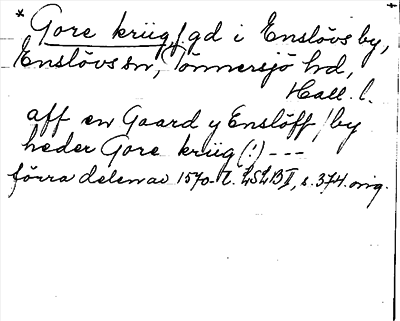 * Gore kriig, / gd i Enslövs by,
Enslövs sn, Tönnersjö hd,
Hall. l.
aff en Gaard y Enslöff / by
heder Gore kriig (!) ---
förra delen av 1570-t. LSLB II, s. 374. orig.